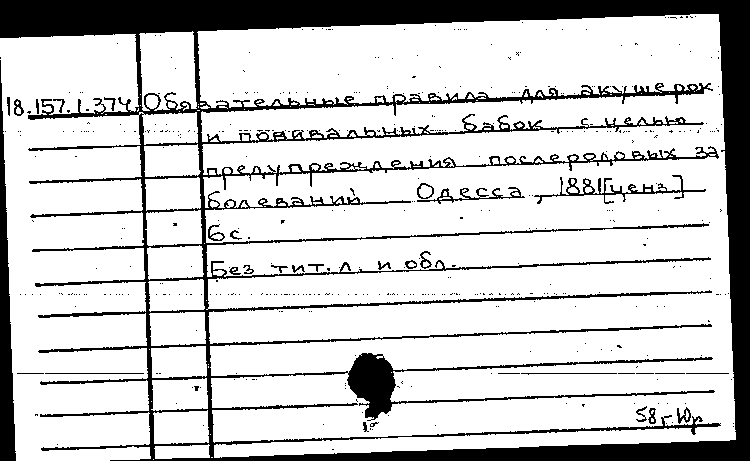 18.157.1.374. Обязательные правила для акушерок
и повивальных бабок, с целью
предупреждения послеродовых за-
болеваний Одесса, 1881[ценз]
6с.
Без тит.л. и обл.
58,-Юр